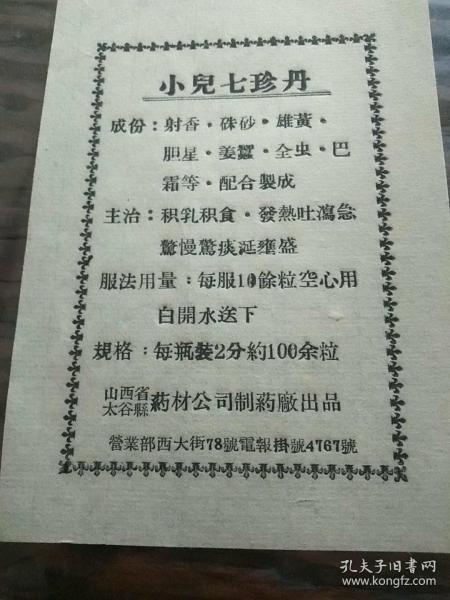 小兒七珍丹
成份：射香·硃砂·雄黃·
胆星·姜蠶·全虫·巴
霜等·配合製成
主治：积乳积食·發熱吐瀉急
驚慢驚痰涎壅盛
服法用量：每服10餘粒空心用
白開水送下
規格：每瓶裝2分約100余粒
山西省太谷縣药材公司制药廠出品
營業部西大街78號電報掛號4767號
孔夫子旧书网
www.kongfz.com